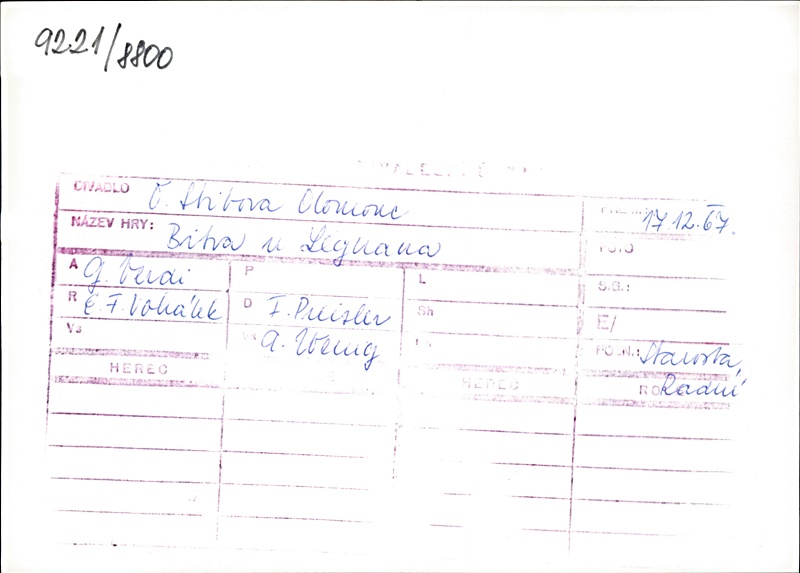 9221/8800
DIVADLO O. Stibora Olomouc
17.12.67.
NÁZEV HRY: Bitva u Legnana
FOTO
A G. Verdi P L S.G.:
R E. F. Vokálek D F. Preisler Sh E/
Vs Vs A. Wenig POZN.: Starosta,
HEREC HEREC Radní